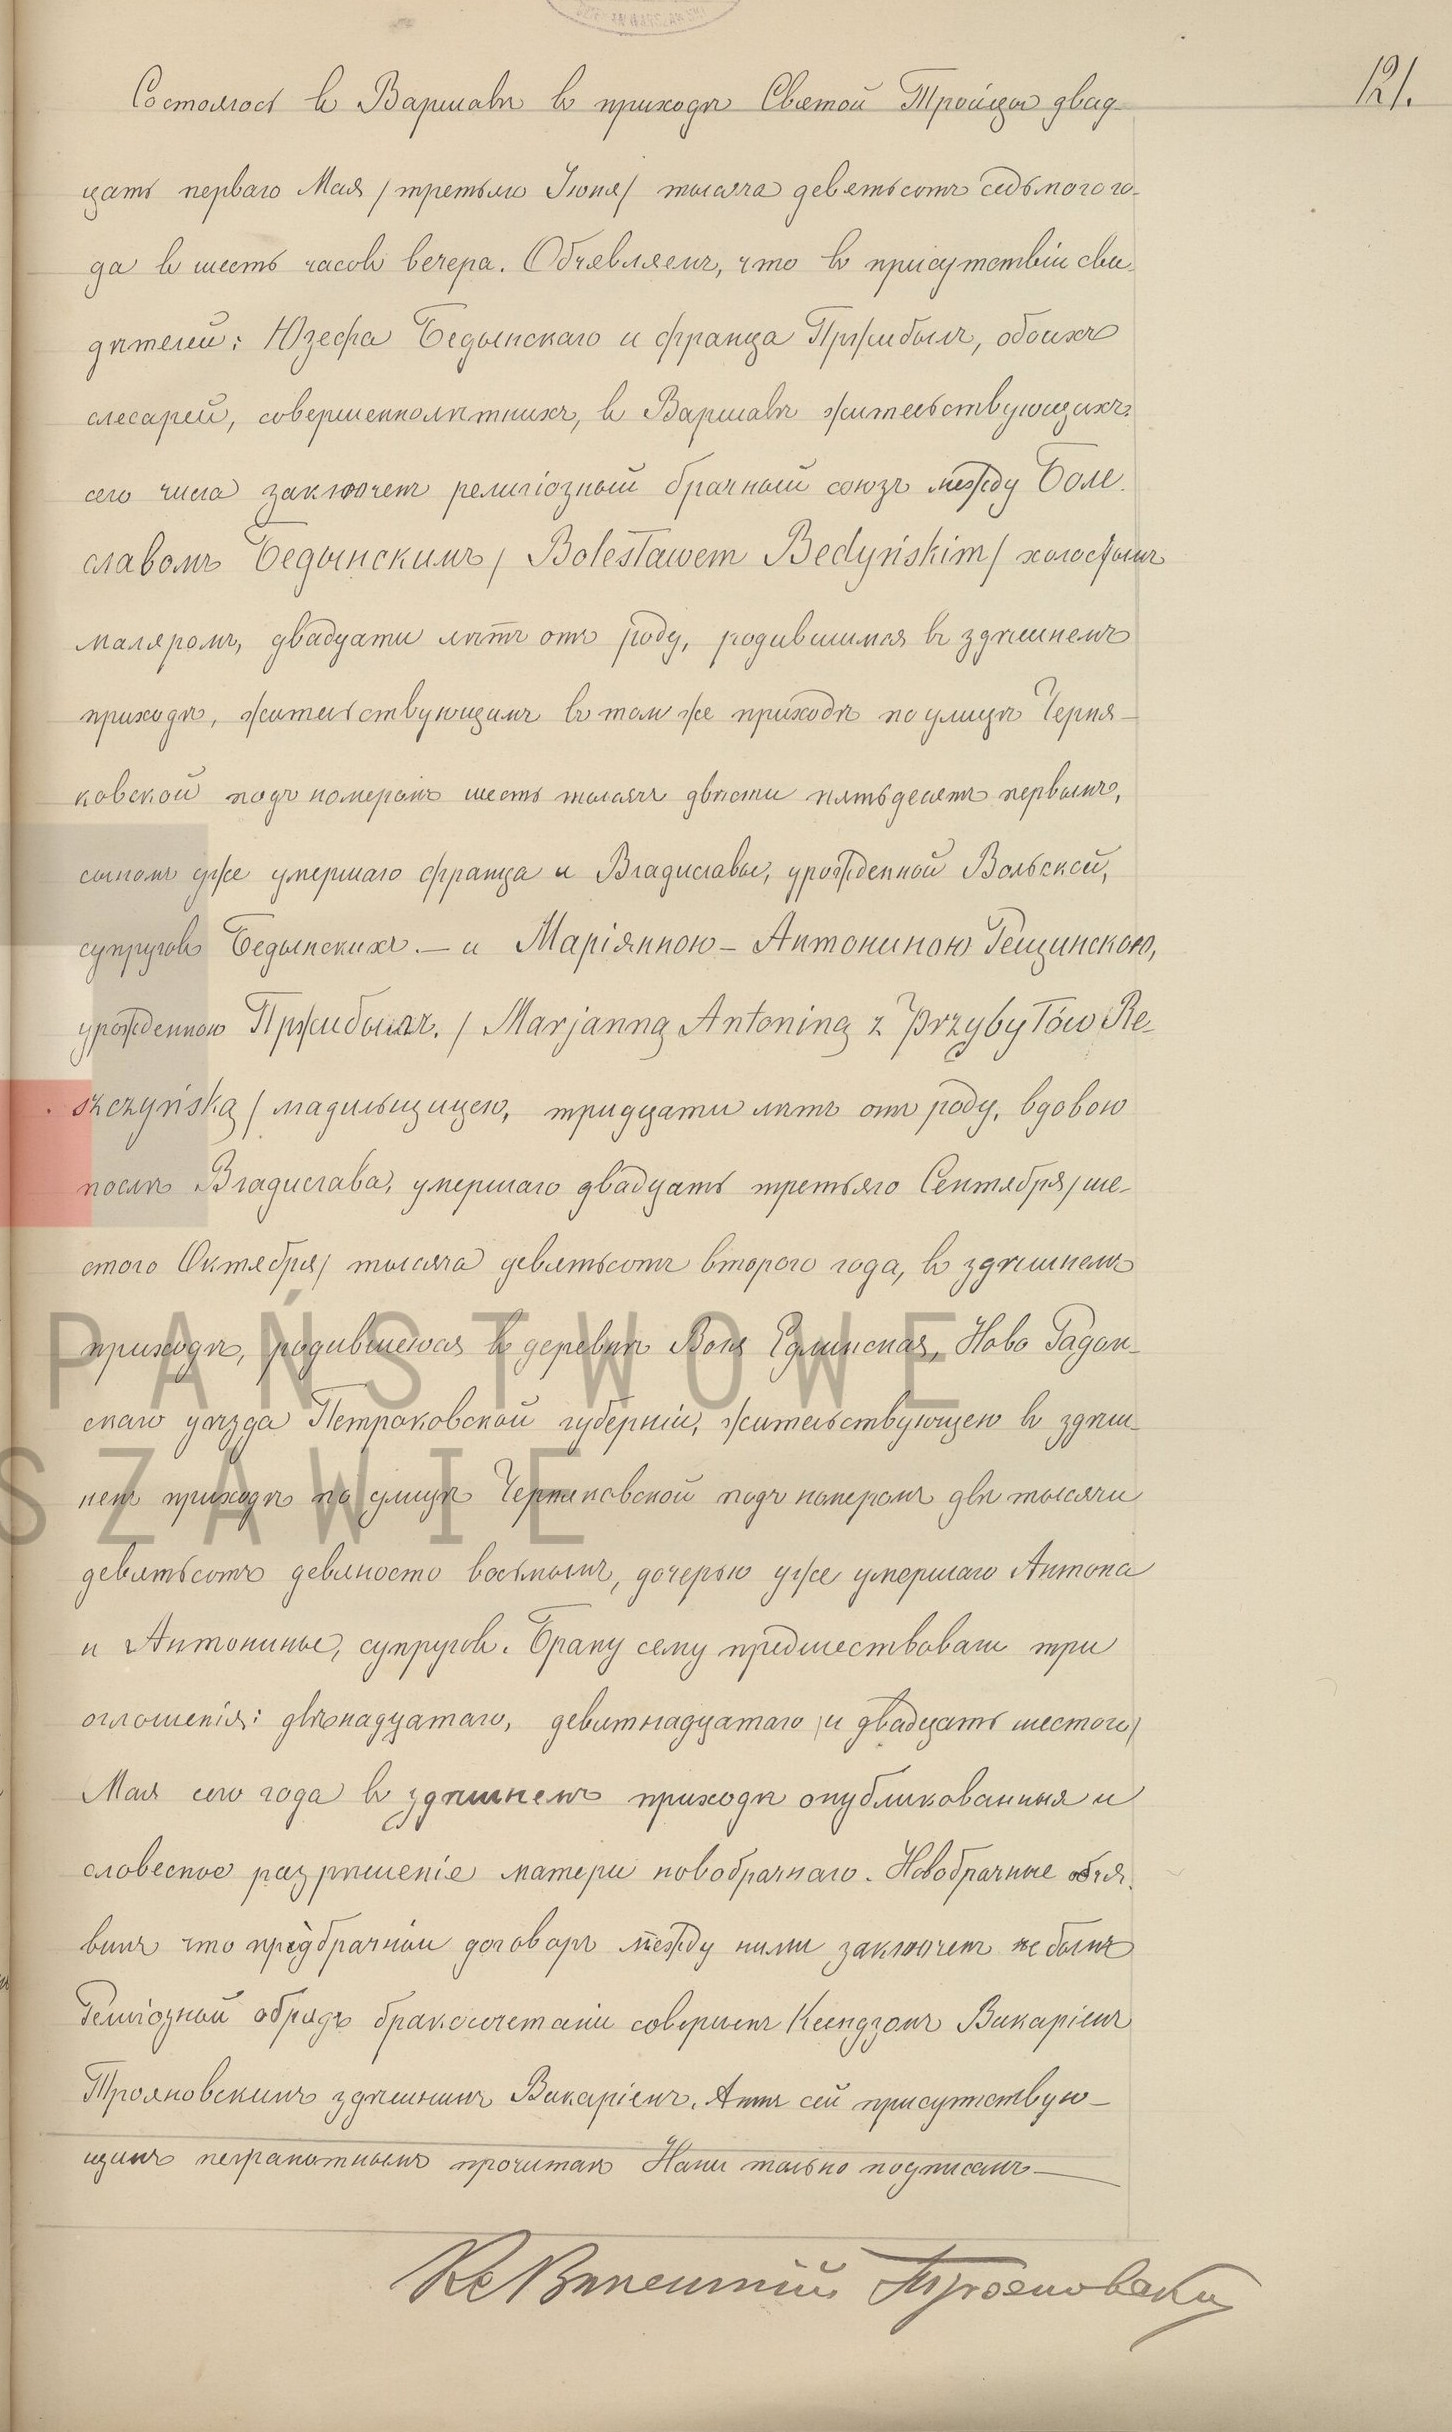 121.
Состоялось въ Варшавѣ въ приходѣ Святой Тройцы двад-
цать перваго Мая /третьяго Іюня/ тысяча девятьсотъ седьмого го-
да въ шесть часовъ вечера. Объявляемъ, что въ присутствіи сви-
дѣтелей: Юзефа Бедынскаго и Франца Пржибылъ, обоихъ
слесарей, совершеннолѣтнихъ, въ Варшавѣ жительствующихъ
сего числа заключенъ религіозный брачный союзъ между Боле-
славомъ Бедынскимъ / Bolesławem Bedyńskim / холостымъ
маляромъ, двадцати лѣтъ отъ роду, родившимся въ здѣшнемъ
приходѣ, жительствующимъ въ томъ же приходѣ по улицѣ Черня-
ковской подъ номеромъ шесть тысячъ двѣсти пятьдесятъ первымъ,
сыномъ уже умершаго Франца и Владиславы, урожденной Вольской,
супруговъ Бедынскихъ. — и Маріянною - Антониною Рещинскою,
урожденною Пржибылъ. / Marjanną Antoniną z Przybyłów Re-
szczyńską / гладильщицею, тридцати лѣтъ отъ роду, вдовою
послѣ Владислава, умершаго двадцать третьяго Сентября /ше-
стого Октября/ тысяча девятьсотъ второго года, въ здѣшнемъ
приходѣ, родившеюся въ деревнѣ Воля Едлинская, Ново Радом-
скаго уѣзда Петроковской губерніи, жительствующею въ здѣш-
немъ приходѣ по улицѣ Черняковской подъ номеромъ двѣ тысячи
девятьсотъ девяносто восьмымъ, дочерью уже умершаго Антона
и Антонины, супруговъ. Браку сему предшествовали три
оглошенія: двѣнадцатаго, девятнадцатаго /и двадцать шестого/
Мая сего года въ здѣшнемъ приходѣ опубликованныя и
словесное разрѣшеніе матери новобрачнаго. Новобрачные объя-
вили что предбрачный договоръ между ними заключенъ не былъ
Религіозный обрядъ бракосочетанія совершенъ Ксендзомъ Викаріемъ
Трояновскимъ здѣшнимъ Викаріемъ. Актъ сей присутствую-
щимъ неграмотнымъ прочитанъ Нами только подписанъ —
Кс Викентій Трояновскій
PAŃSTWOWE
SZAWIE